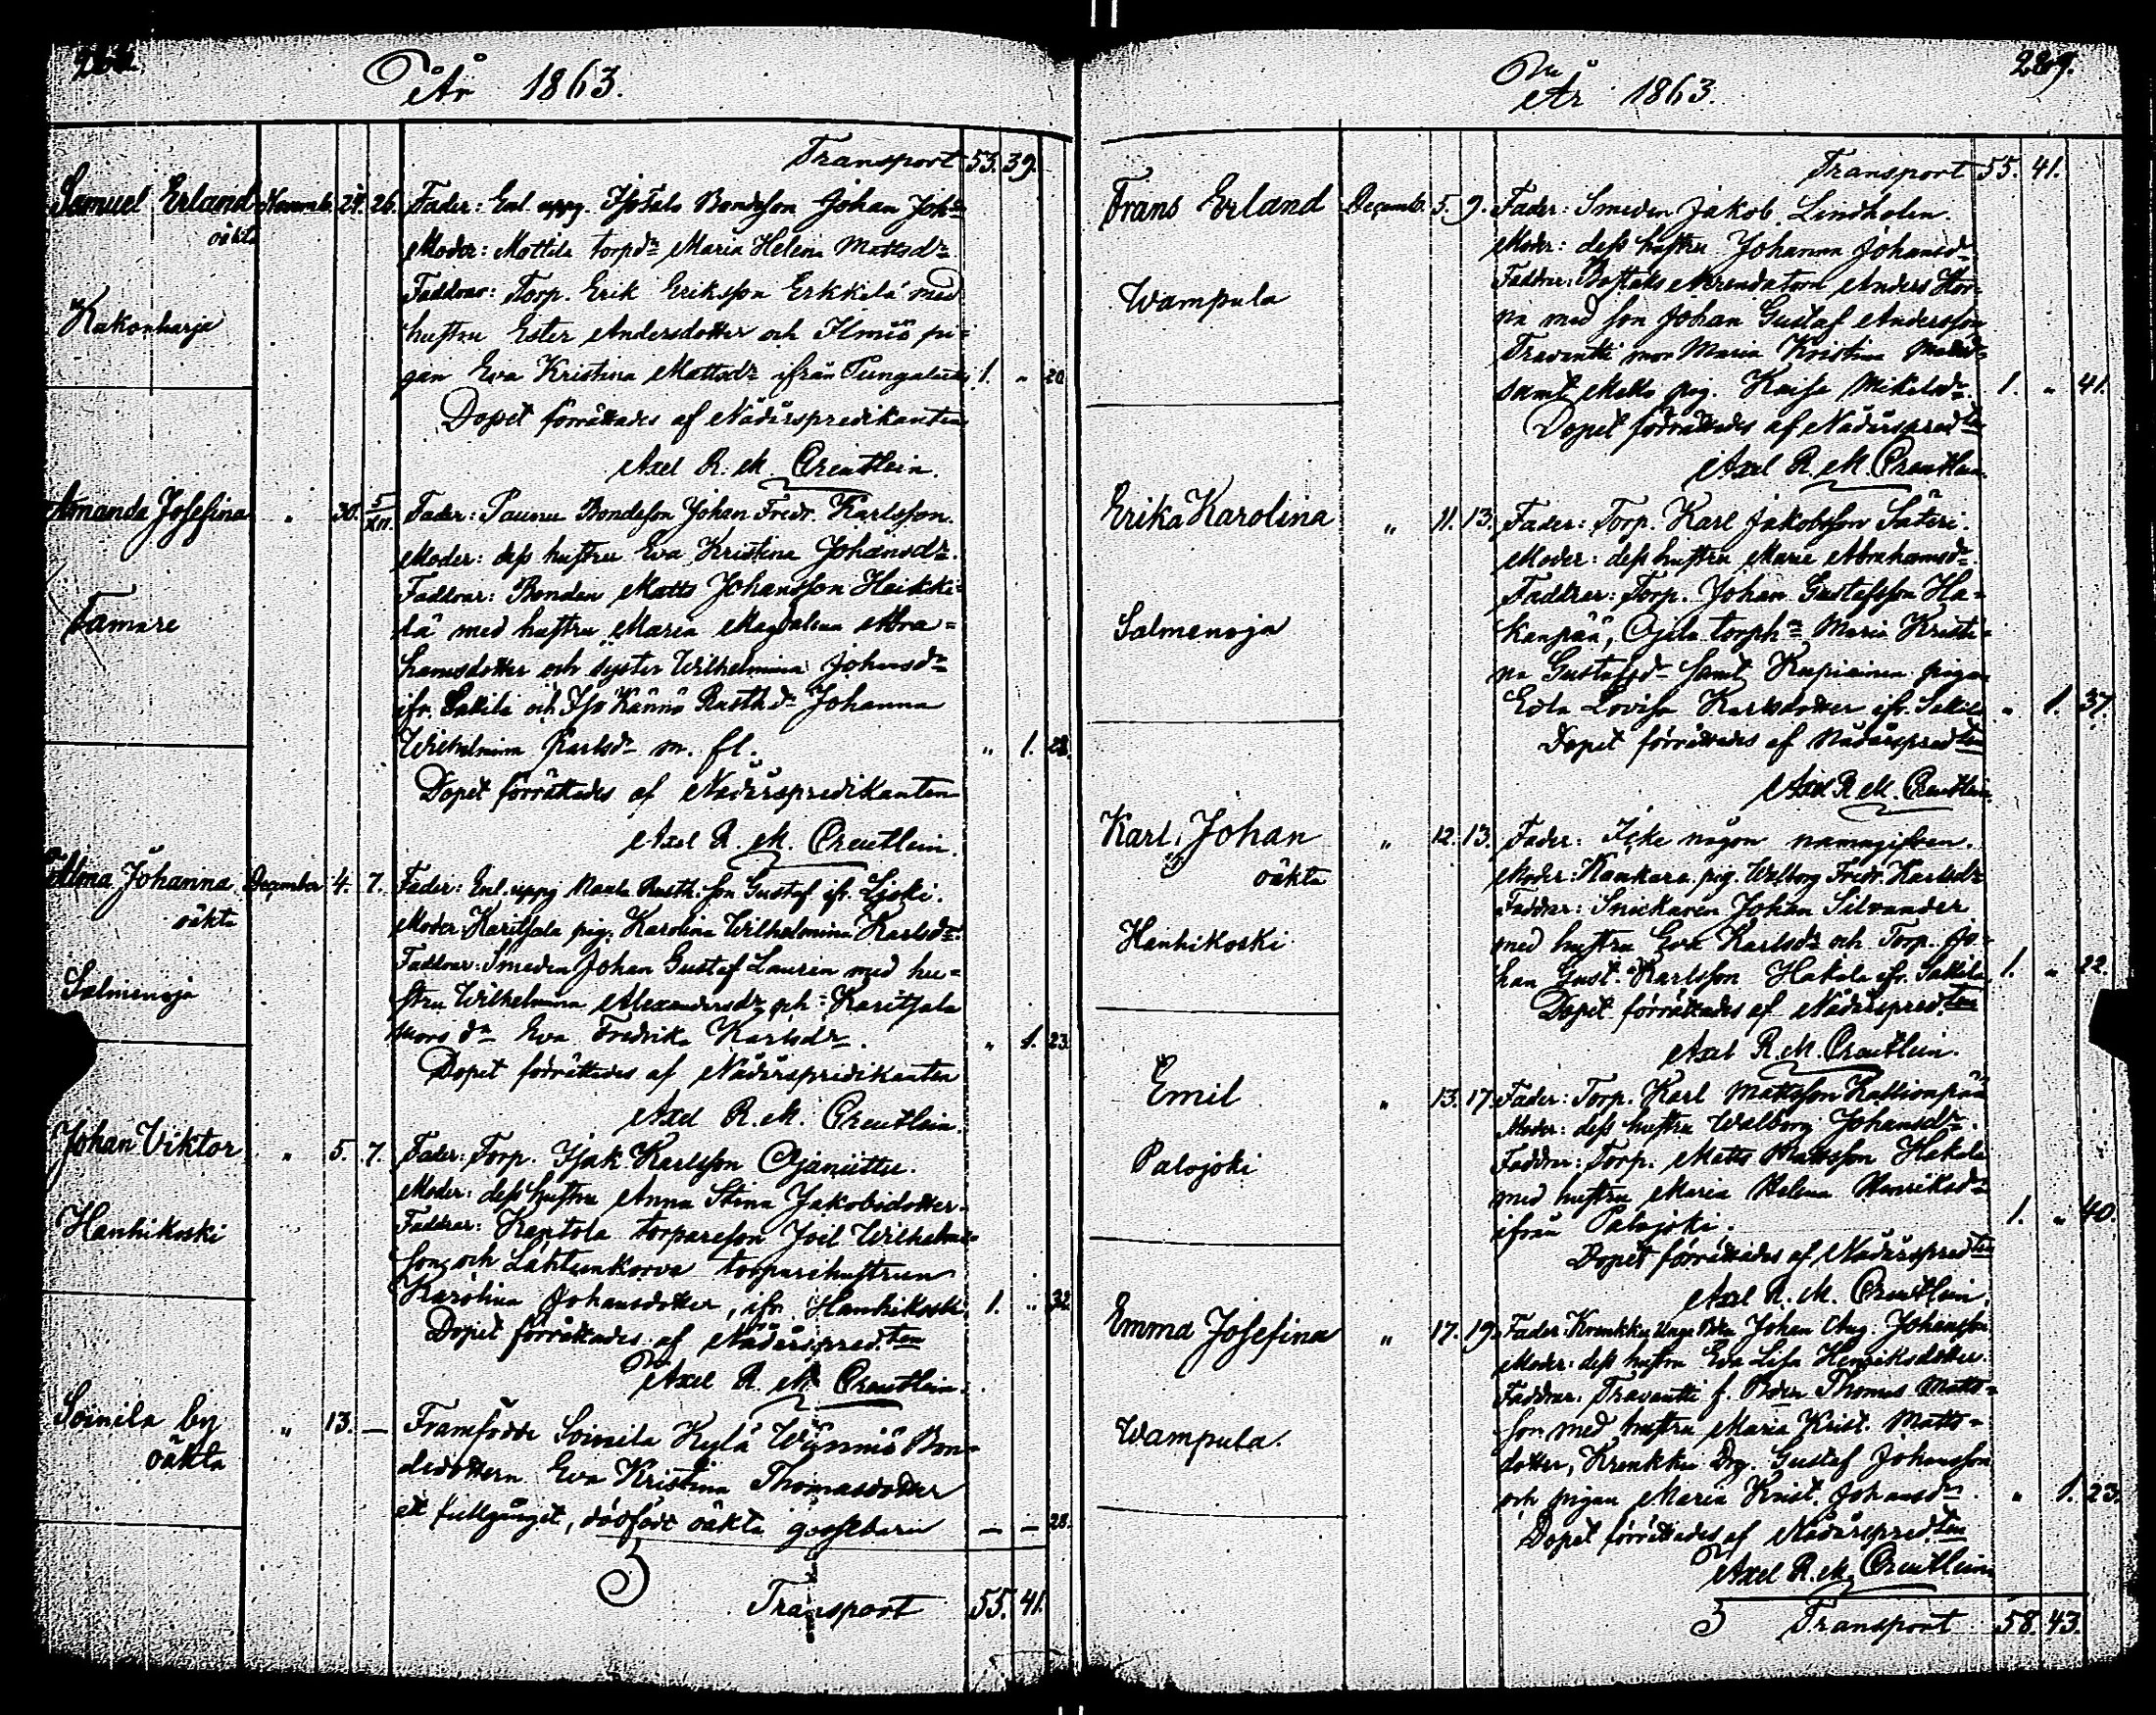 År 1863.
Transport 53. 39.
Samuel Erland Novemb. 24. 26. Fader: Enl. uppg. Isotalo Bondeson Johan Joh:
oäkta
Moder: Mattila torpdr Maria Helena Mattsdr
Faddrar: Torp. Erik Eriksson Erkkilä med
Kakonharja
hustru Ester Andersdotter och Ilmiö pi-
gan Eva Kristina Mattsdr ifrån 1. " 20.
Dopet förrättades af Nådårspredikanten
Axel R. M. Creutlein.
Amanda Josefina " 30. 5/XII. Fader: Bondeson Johan Fredr. Karlsson.
Moder: dess hustru Eva Kristina Johansdr.
Faddrar: Bonden Matts Johansson Heikki-
Tamare
lä med hustru Maria Magdalena Abra-
hamsdotter och syster Wilhelmina Johansdr
ifr. Säkilä och Iso Kännö Rusth.dr Johanna
Wilhelmina Karlsdr m. fl. " 1. 28.
Dopet förrättades af Nådårspredikanten
Axel R. M. Creutlein.
Alma Johanna December 4. 7. Fader: Enl. uppg. Rusth. son Gustaf ifr.
oäkta
Moder: Karitsala pig. Karolina Wilhelmina Karlsdr.
Faddrar: Smeden Johan Gustaf Laurén med hu-
Salmenoja
stru Wilhelmina Alexandersdr och Karitsala
mors dr Eva Fredrika Karlsdr. " 1. 23.
Dopet förrättades af Nådårspredikanten
Axel R. M. Creutlein.
Johan Viktor " 5. 7. Fader: Torp. Isak Karlsson Ojaniittu.
Moder: dess hustru Anna Stina Jakobsdotter.
Hanhikoski
Faddrar: torpareson Joel Wilhelms-
son och Lähteenkorva torparehustrun
Karolina Johansdotter, ifr. Hanhikoski 1. " 32.
Dopet förrättades af Nådårspred.ten
Axel R. M. Creutlein.
Soinila by " 13. — Framfödde Soinila Kylä Bon-
oäkta
dedottern Eva Kristina Thomasdotter
ett fullgånget, dödfödt oäkta gossebarn — — 28.
Transport 55. 41.
År 1863. 229.
Transport 55. 41.
Frans Erland Decemb. 5. 9. Fader: Smeden Jakob Lindholm.
Moder: dess hustru Johanna Johansdr
Wampula
Faddrar: Boställs Arrendatorn Anders Hör-
na med son Johan Gustaf Andersson
Travantti mor Maria Kristina
samt pig. Kaisa Mikelsdr. 1. " 41.
Dopet förrättades af Nådårspredten
Axel R. M. Creutlein.
Erika Karolina " 11. 13. Fader: Torp. Karl Jakobsson Säteri.
Moder: dess hustru Maria Abrahamsdr.
Faddrar: Torp. Johan Gustafsson Ha-
Salmenoja
kanpää, Ojala torph. Maria Kristi-
na Gustafsdr samt Kupiainen pigan
Edla Lovisa Karlsdotter ifr. Säkilä " 1. 37.
Dopet förrättades af Nådårspredten
Axel R. M. Creutlein.
Karl Johan " 12. 13. Fader: Icke någon namngifven.
oäkta
Moder: Kankare pig. Walborg Fredr. Karlsdr
Faddrar: Snickaren Johan Silvander
Hanhikoski
med hustru Eva Karlsdr och Torp. Jo-
han Gust. Karlsson Hakala ifr. Säkilä 1. " 22.
Dopet förrättades af Nådårspred.ten
Axel R. M. Creutlein.
Emil " 13. 17. Fader: Torp. Karl Mattsson Kallionpää
Moder: dess hustru Walborg Johansdr.
Palojoki
Faddrar: Torp. Matts Mattsson Hakala
med hustru Maria Helena Henriksdr
ifrån Palojoki. 1. " 40.
Dopet förrättades af Nådårspredten
Axel R. M. Creutlein
Emma Josefina " 17. 19. Fader: Krenkku Unge Bden Johan Aug. Johansson
Moder: dess hustru Eva Lisa Henriksdotter.
Faddrar: Travantti f. Bden Thomas Matts-
Wampula.
son med hustru Maria Krist. Matts-
dotter, Krenkku Drg. Gustaf Johansson
och pigan Maria Krist. Johansdr. " 1. 23.
Dopet förrättades af Nådårspred.ten
Axel R. M. Creutlein
Transport 58. 43.